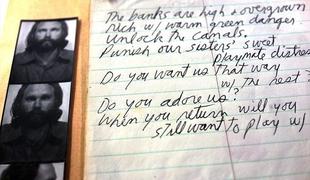 The banks are high & overgrown
rich w/ warm green danger.
Unlock the canals.
Punish our sisters' sweet
playmate distress
Do you want us that way
w/ the rest?
Do you adore us?
When you return will you
still want to play w/